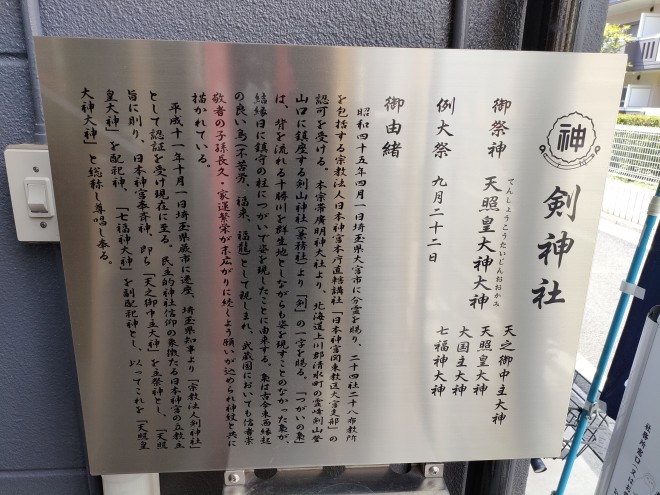 神
剣神社
御祭神 天照皇大神大神
てんしょうこうたいじんおおかみ
天之御中主大神
天照皇大神
大国主大神
七福神大神
例大祭 九月二十二日
御由緒
昭和四十五年四月一日埼玉県大宮市に分霊を賜り、二十四社二十八布教所
を包括する宗教法人日本神宮本庁直轄講社「日本神宮関東教区大宮支部」の
認可を受ける。本宗帯廣明神大社より、北海道上川郡清水町の霊峰剣山登
山口に鎮座する剣山神社(兼務社)より「剣」の一字を賜る。「つがいの梟」
は、背を流れる十勝川を群生地としながらも姿を現すことのなかった梟が、
結縁日に鎮守の杜につがいで姿を現したことに由来する。梟は古今東西縁起
の良い鳥(不苦労、福来、福籠)として親しまれ、武蔵国においても信者崇
敬者の子孫長久・家運繁栄が末広がりに続くよう願いが込められ神紋と共に
描かれている。
平成十一年十月一日埼玉県蕨市に遷座、埼玉県知事より「宗教法人剣神社」
として認証を受け現在に至る。民主的神社信仰の象徴たる日本神宮の立教主
旨に則り、日本神宮奉斎神、即ち「天之御中主大神」を主祭神とし、「天照
皇大神」を配祀神、「七福神大神」を副配祀神とし、以ってこれを「天照皇
大神大神」と総称し尊唱し奉る。
社務所窓口